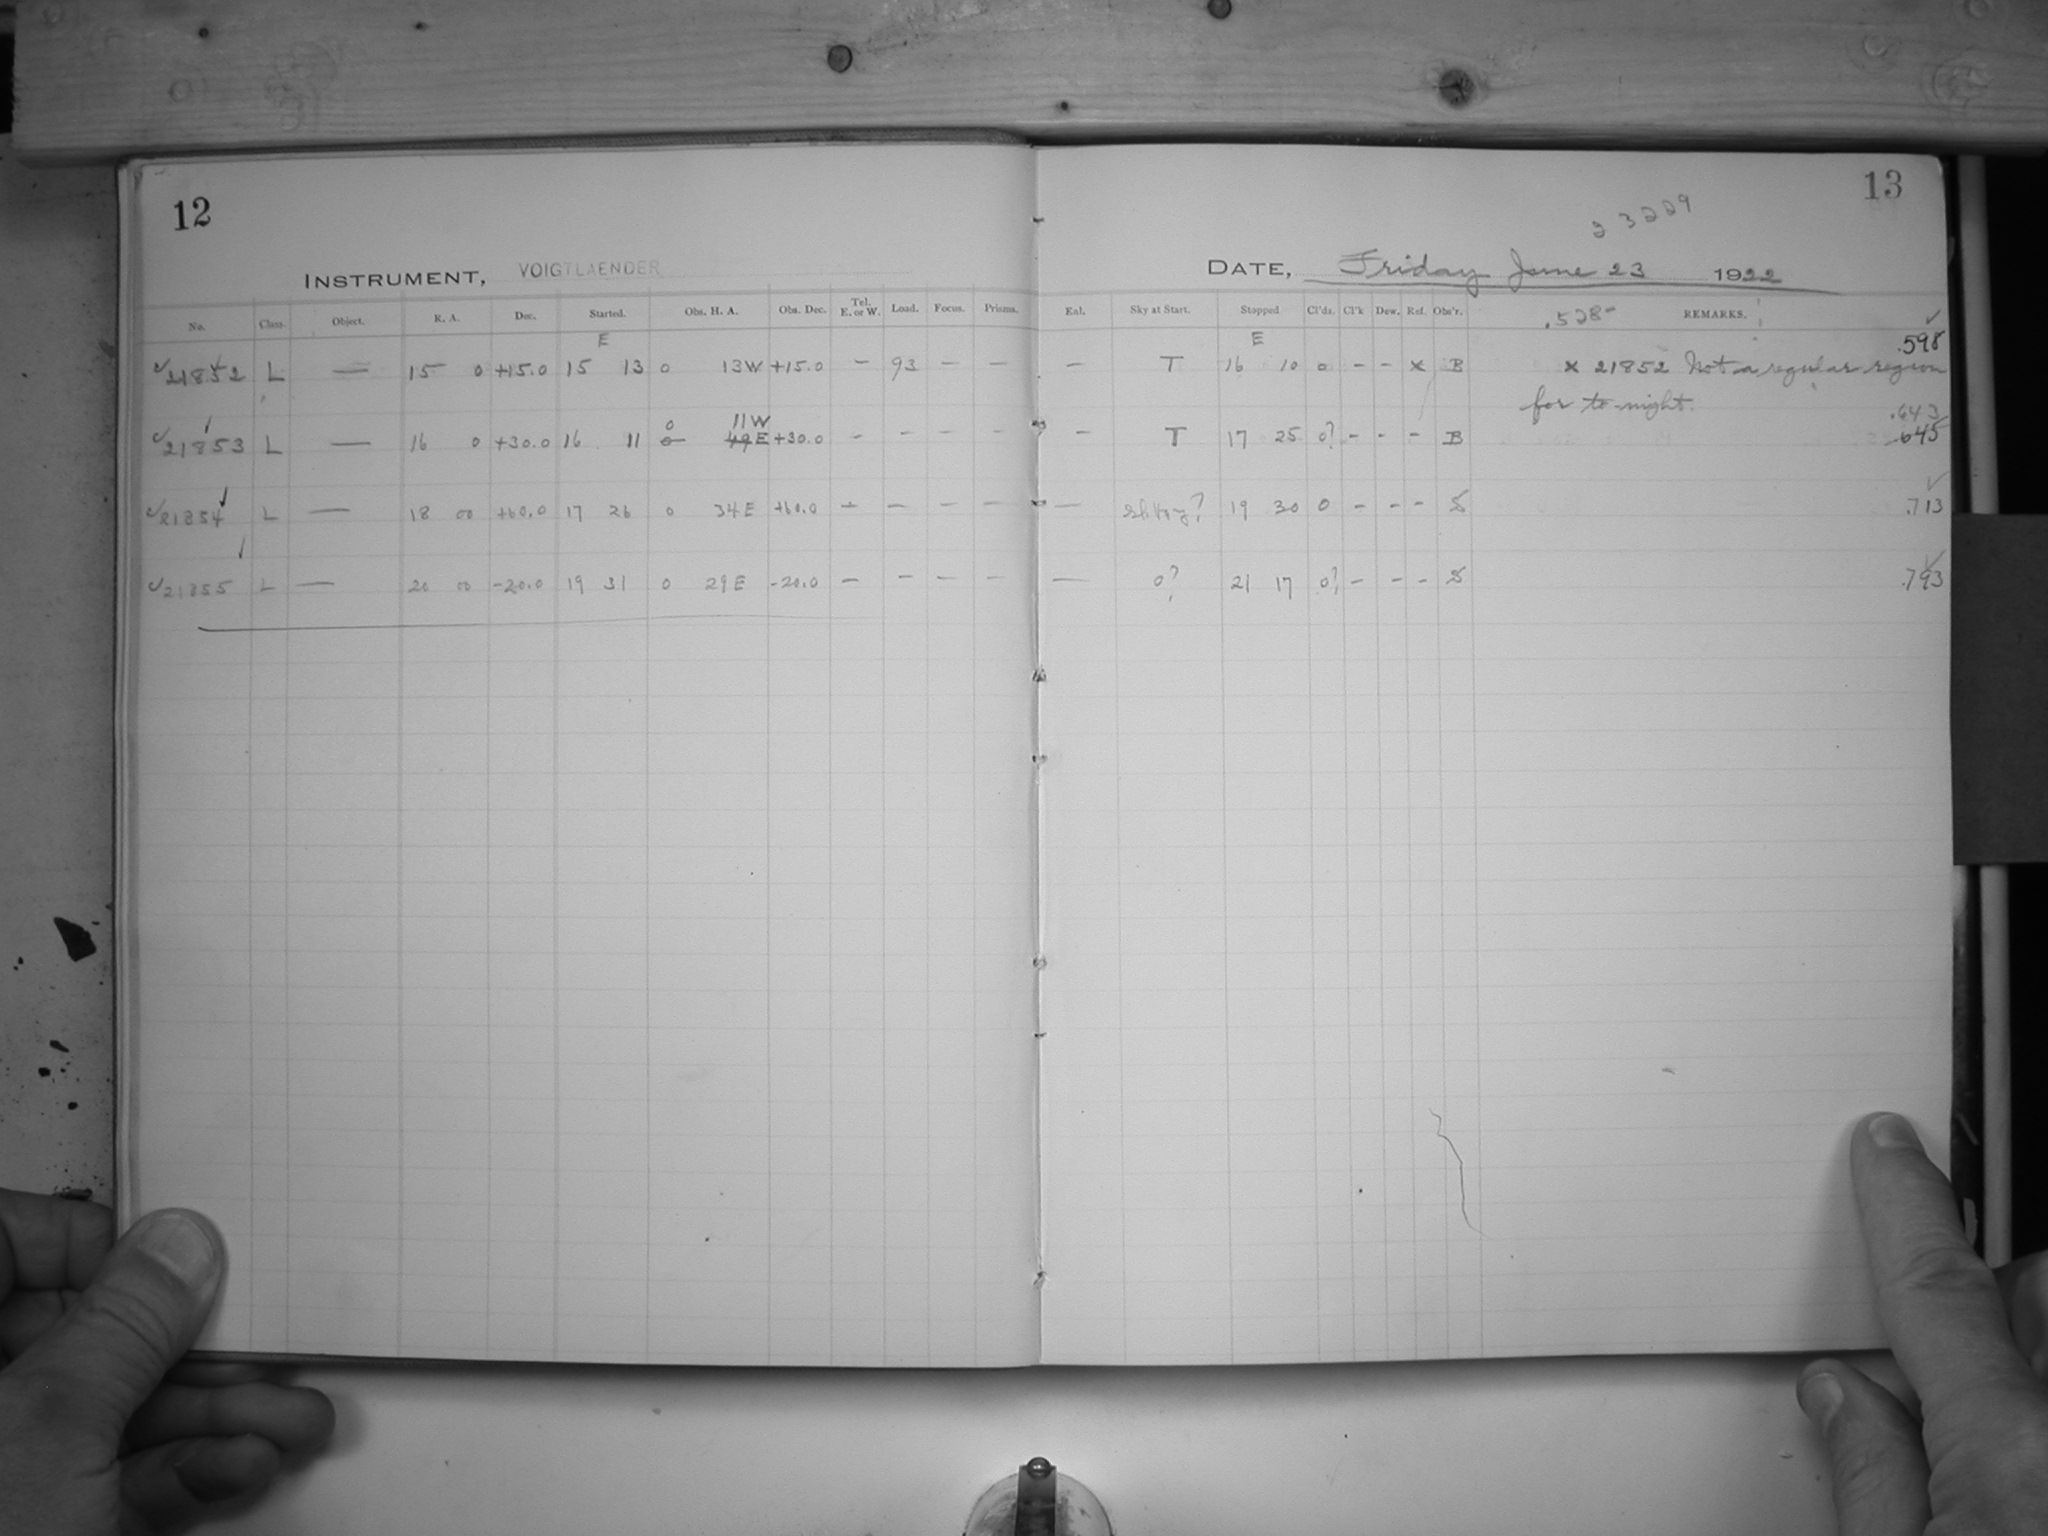 12
INSTRUMENT, VOIGTLAENDER
No. Class. Object. R. A. Dec. Started. Obs. H. A. Obs. Dec. Tel. E. or W. Load. Focus. Prisms.
E
21852 L — 15 0 +15.0 15 13 0 13W +15.0 — 93 — —
0 11W
21853 L — 16 0 +30.0 16 11 0 49E +30.0 — — — —
21854 L — 18 00 +60.0 17 26 0 34E +60.0 — — — —
21855 L — 20 00 -20.0 19 31 0 29E -20.0 — — — —
13
23229
DATE, Friday June 23 1922
Eal. Sky at Start. Stopped Cl'ds. Cl'k Dew. Ref. Obs'r. .528 REMARKS.
E
.598
— T 16 10 0 - - x B x 21852 Not a regular region
for to-night.
.643
— T 17 25 0? - - - B .645
— ? 19 30 0 - - - S .713
— 0? 21 17 0? - - - S .793